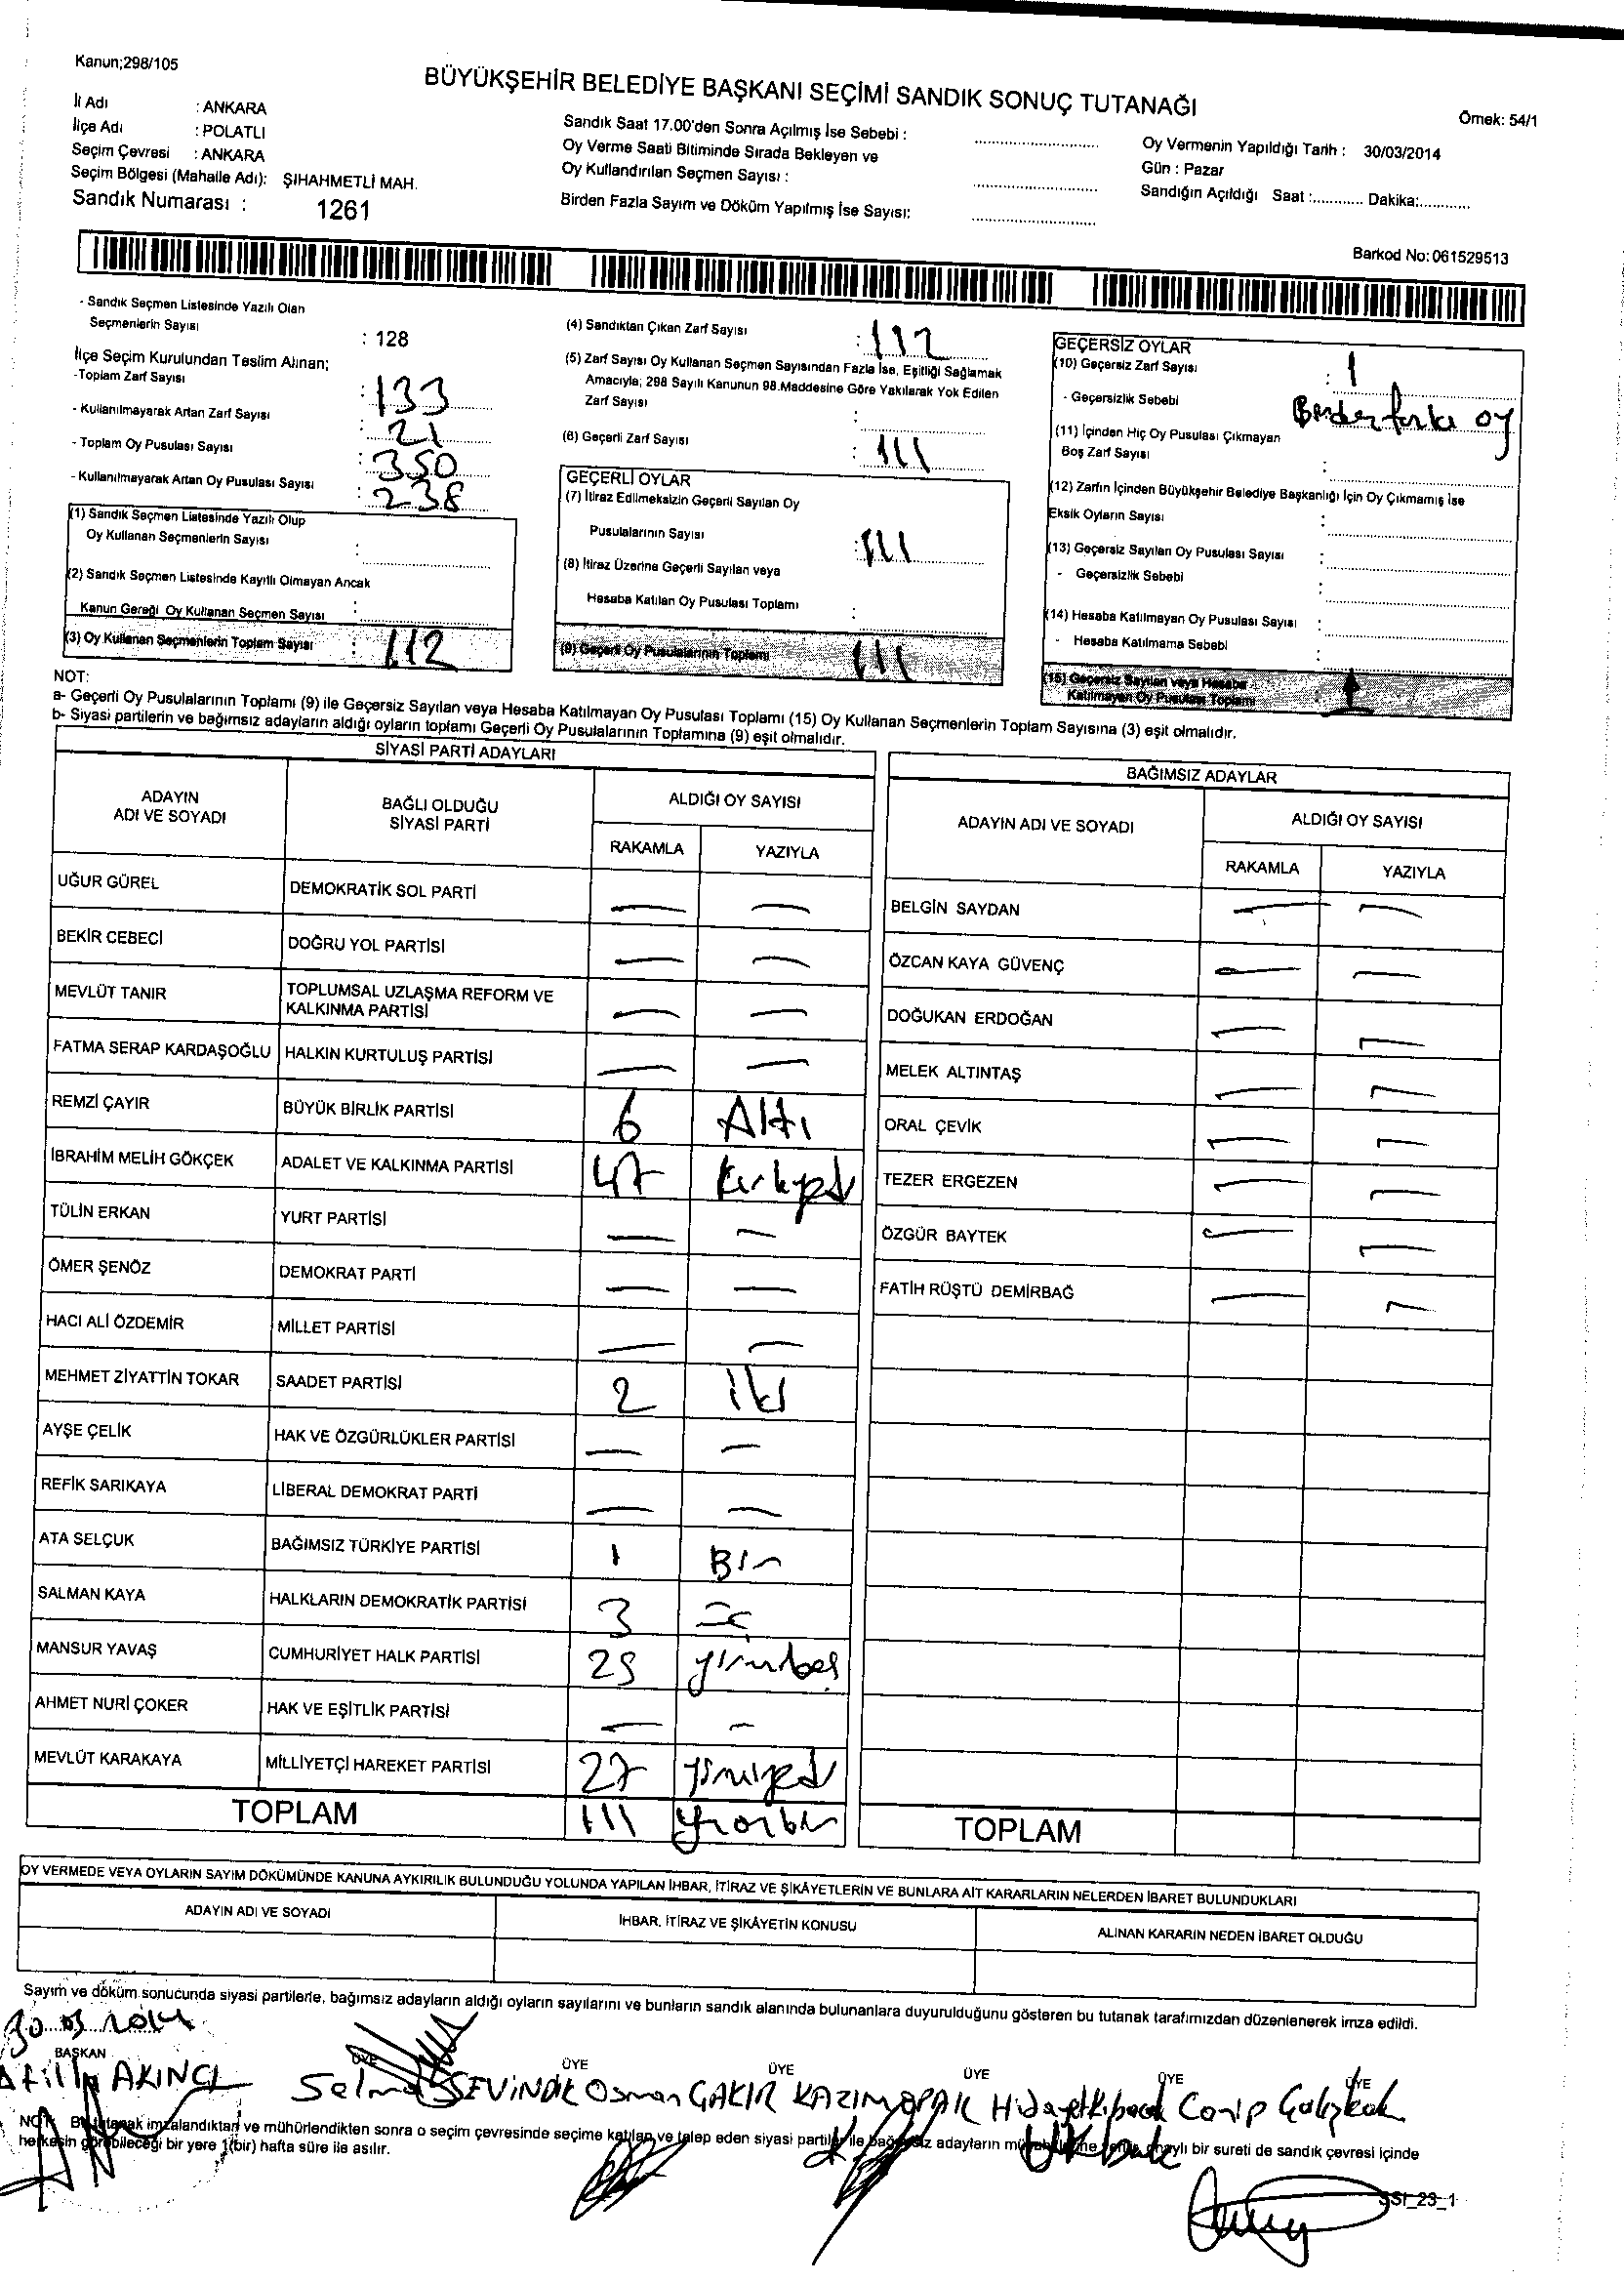 Kanun;298/105
BÜYÜKŞEHİR BELEDİYE BAŞKANI SEÇİMİ SANDIK SONUÇ TUTANAĞI
Örnek: 54/1
İl Adı : ANKARA
İlçe Adı : POLATLI
Seçim Çevresi : ANKARA
Seçim Bölgesi (Mahalle Adı): ŞIHAHMETLİ MAH.
Sandık Numarası : 1261
Sandık Saat 17.00'den Sonra Açılmış İse Sebebi :
Oy Verme Saati Bitiminde Sırada Bekleyen ve
Oy Kullandırılan Seçmen Sayısı :
Birden Fazla Sayım ve Döküm Yapılmış İse Sayısı:
Oy Vermenin Yapıldığı Tarih : 30/03/2014
Gün : Pazar
Sandığın Açıldığı Saat :............ Dakika:............
Barkod No: 061529513
- Sandık Seçmen Listesinde Yazılı Olan
Seçmenlerin Sayısı : 128
İlçe Seçim Kurulundan Teslim Alınan;
-Toplam Zarf Sayısı : 133
- Kullanılmayarak Artan Zarf Sayısı : 21
- Toplam Oy Pusulası Sayısı : 350
- Kullanılmayarak Artan Oy Pusulası Sayısı : 238
(1) Sandık Seçmen Listesinde Yazılı Olup
Oy Kullanan Seçmenlerin Sayısı :
(2) Sandık Seçmen Listesinde Kayıtlı Olmayan Ancak
Kanun Gereği Oy Kullanan Seçmen Sayısı :
(3) Oy Kullanan Seçmenlerin Toplam Sayısı : 112
(4) Sandıktan Çıkan Zarf Sayısı : 112
(5) Zarf Sayısı Oy Kullanan Seçmen Sayısından Fazla İse, Eşitliği Sağlamak
Amacıyla; 298 Sayılı Kanunun 98.Maddesine Göre Yakılarak Yok Edilen
Zarf Sayısı :
(6) Geçerli Zarf Sayısı : 111
GEÇERLİ OYLAR
(7) İtiraz Edilmeksizin Geçerli Sayılan Oy
Pusulalarının Sayısı : 111
(8) İtiraz Üzerine Geçerli Sayılan veya
Hesaba Katılan Oy Pusulası Toplamı :
(9) Geçerli Oy Pusulalarının Toplamı 111
GEÇERSİZ OYLAR
(10) Geçersiz Zarf Sayısı : 1
- Geçersizlik Sebebi oy
(11) İçinden Hiç Oy Pusulası Çıkmayan
Boş Zarf Sayısı :
(12) Zarfın İçinden Büyükşehir Belediye Başkanlığı İçin Oy Çıkmamış İse
Eksik Oyların Sayısı :
(13) Geçersiz Sayılan Oy Pusulası Sayısı :
- Geçersizlik Sebebi :
(14) Hesaba Katılmayan Oy Pusulası Sayısı :
- Hesaba Katılmama Sebebi :
(15) Geçersiz Sayılan veya Hesaba
Katılmayan Oy Pusulası Toplamı : 1
NOT:
a- Geçerli Oy Pusulalarının Toplamı (9) ile Geçersiz Sayılan veya Hesaba Katılmayan Oy Pusulası Toplamı (15) Oy Kullanan Seçmenlerin Toplam Sayısına (3) eşit olmalıdır.
b- Siyasi partilerin ve bağımsız adayların aldığı oyların toplamı Geçerli Oy Pusulalarının Toplamına (9) eşit olmalıdır.
SİYASİ PARTİ ADAYLARI
ADAYIN ADI VE SOYADI
BAĞLI OLDUĞU SİYASİ PARTİ
ALDIĞI OY SAYISI
RAKAMLA YAZIYLA
UĞUR GÜREL DEMOKRATİK SOL PARTİ — —
BEKİR CEBECİ DOĞRU YOL PARTİSİ — —
MEVLÜT TANIR TOPLUMSAL UZLAŞMA REFORM VE KALKINMA PARTİSİ — —
FATMA SERAP KARDAŞOĞLU HALKIN KURTULUŞ PARTİSİ — —
REMZİ ÇAYIR BÜYÜK BİRLİK PARTİSİ 6 Altı
İBRAHİM MELİH GÖKÇEK ADALET VE KALKINMA PARTİSİ 47 Kırkyedi
TÜLİN ERKAN YURT PARTİSİ — —
ÖMER ŞENÖZ DEMOKRAT PARTİ — —
HACI ALİ ÖZDEMİR MİLLET PARTİSİ — —
MEHMET ZİYATTİN TOKAR SAADET PARTİSİ 2 iki
AYŞE ÇELİK HAK VE ÖZGÜRLÜKLER PARTİSİ — —
REFİK SARIKAYA LİBERAL DEMOKRAT PARTİ — —
ATA SELÇUK BAĞIMSIZ TÜRKİYE PARTİSİ 1 Bir
SALMAN KAYA HALKLARIN DEMOKRATİK PARTİSİ 3 üç
MANSUR YAVAŞ CUMHURİYET HALK PARTİSİ 25 yirmibeş
AHMET NURİ ÇOKER HAK VE EŞİTLİK PARTİSİ — —
MEVLÜT KARAKAYA MİLLİYETÇİ HAREKET PARTİSİ 27 yirmiyedi
TOPLAM 111 yüzonbir
BAĞIMSIZ ADAYLAR
ADAYIN ADI VE SOYADI
ALDIĞI OY SAYISI
RAKAMLA YAZIYLA
BELGİN SAYDAN — —
ÖZCAN KAYA GÜVENÇ — —
DOĞUKAN ERDOĞAN — —
MELEK ALTINTAŞ — —
ORAL ÇEVİK — —
TEZER ERGEZEN — —
ÖZGÜR BAYTEK — —
FATİH RÜŞTÜ DEMİRBAĞ — —
TOPLAM
OY VERMEDE VEYA OYLARIN SAYIM DÖKÜMÜNDE KANUNA AYKIRILIK BULUNDUĞU YOLUNDA YAPILAN İHBAR, İTİRAZ VE ŞİKÂYETLERİN VE BUNLARA AİT KARARLARIN NELERDEN İBARET BULUNDUKLARI
ADAYIN ADI VE SOYADI
İHBAR, İTİRAZ VE ŞİKÂYETİN KONUSU
ALINAN KARARIN NEDEN İBARET OLDUĞU
Sayım ve döküm sonucunda siyasi partilerle, bağımsız adayların aldığı oyların sayılarını ve bunların sandık alanında bulunanlara duyurulduğunu gösteren bu tutanak tarafımızdan düzenlenerek imza edildi.
30.03.2014
BAŞKAN ÜYE ÜYE ÜYE ÜYE ÜYE ÜYE
Atilla AKINCI Selma SEVİNDİK Osman ÇAKIR KAZIM Hidayet Canip Çalışkan
NOT: Bu tutanak imzalandıktan ve mühürlendikten sonra o seçim çevresinde seçime katılan ve talep eden siyasi partiler ile bağımsız adayların onaylı bir sureti de sandık çevresi içinde
herkesin görebileceği bir yere 1(bir) hafta süre ile asılır.
SSI_23_1